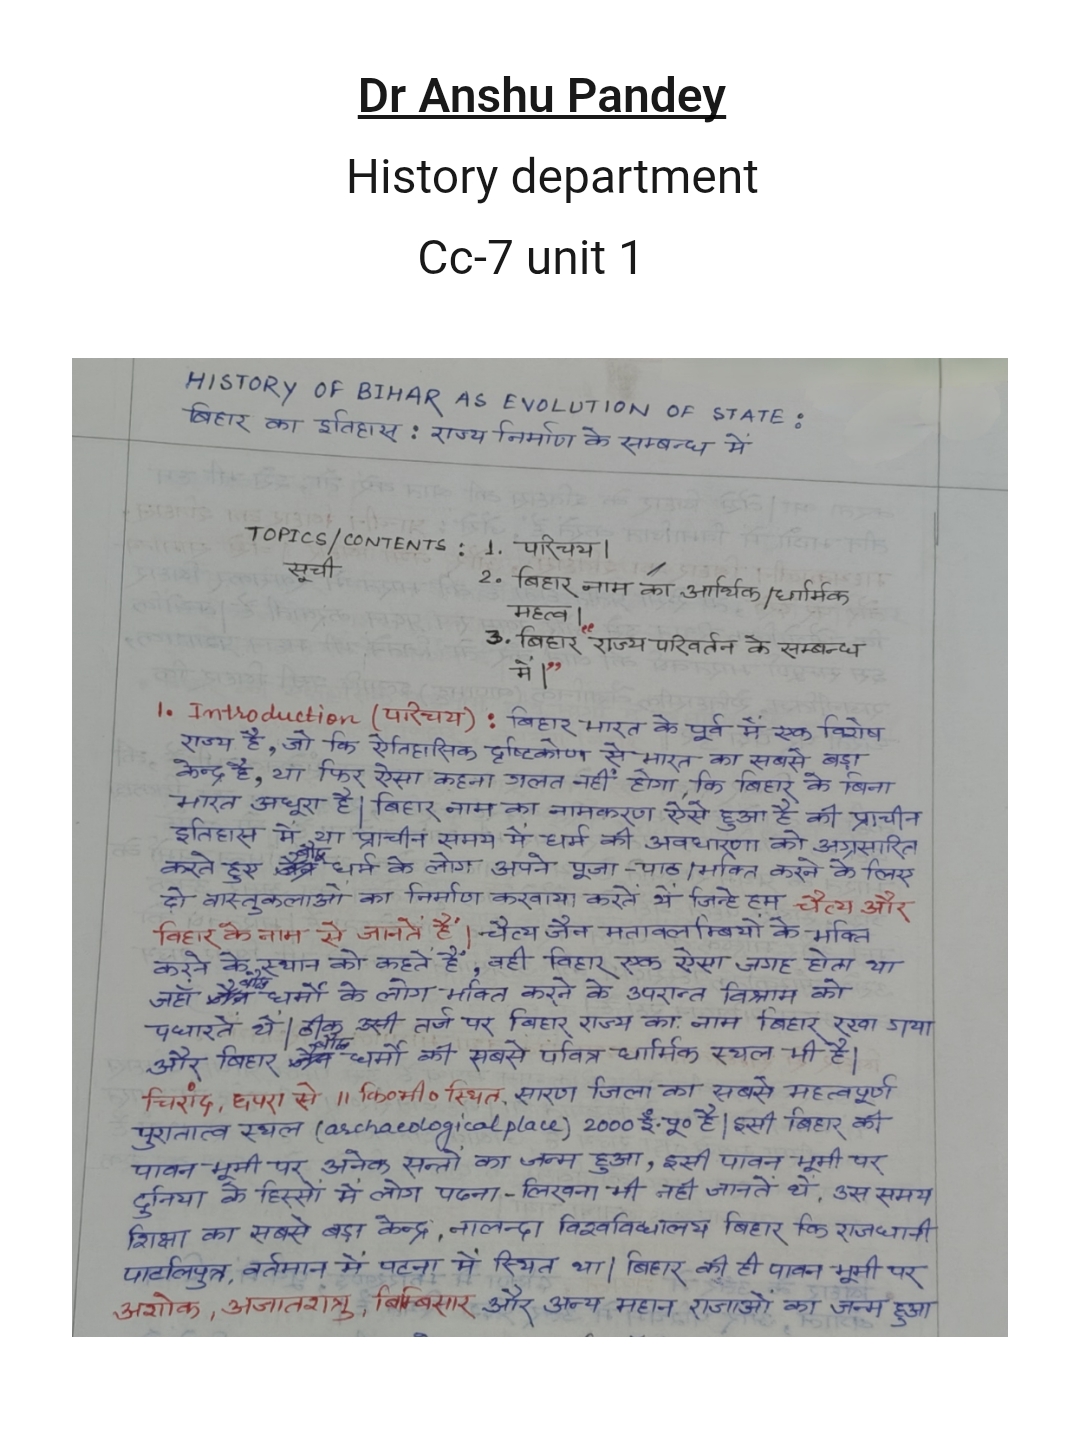 Dr Anshu Pandey
History department
Cc-7 unit 1
HISTORY OF BIHAR AS EVOLUTION OF STATE :
बिहार का इतिहास : राज्य निर्माण के सम्बन्ध में
TOPICS/CONTENTS : 1. परिचय।
सूची
2. बिहार नाम का आर्थिक/धार्मिक
महत्व।
3. बिहार "राज्य परिवर्तन के सम्बन्ध
में।"
1. Introduction (परिचय) : बिहार भारत के पूर्व में एक विशेष
राज्य है, जो कि ऐतिहासिक दृष्टिकोण से भारत का सबसे बड़ा
केन्द्र है, या फिर ऐसा कहना गलत नहीं होगा, कि बिहार के बिना
भारत अधूरा है। बिहार नाम का नामकरण ऐसे हुआ है की प्राचीन
इतिहास में या प्राचीन समय में धर्म की अवधारणा को अग्रसारित
करते हुए बौद्ध धर्म के लोग अपने पूजा-पाठ/भक्ति करने के लिए
दो वास्तुकलाओं का निर्माण करवाया करतें थें जिन्हे हम चैत्य और
विहार के नाम से जानतें हैं। चैत्य जैन मतावलम्बियों के भक्ति
करने के स्थान को कहतें हैं, वही विहार एक ऐसा जगह होता था
जहाँ बौद्ध धर्मो के लोग भक्ति करने के उपरान्त विश्राम को
पधारतें थें। ठीक उसी तर्ज पर बिहार राज्य का नाम बिहार रखा गया
और बिहार बौद्ध धर्मो की सबसे पवित्र धार्मिक स्थल भी है।
चिरांद, छपरा से 11 कि०मी० स्थित, सारण जिला का सबसे महत्वपूर्ण
पुरातात्व स्थल (archaeological place) 2000 ई.पू० है। इसी बिहार की
पावन भूमी पर अनेक सन्तों का जन्म हुआ, इसी पावन भूमी पर
दुनिया के हिस्सों में लोग पढना-लिखना भी नही जानतें थें, उस समय
शिक्षा का सबसे बड़ा केन्द्र, नालन्दा विश्वविद्यालय बिहार कि राजधानी
पाटलिपुत्र, वर्तमान में पटना में स्थित था। बिहार की ही पावन भूमी पर
अशोक, अजातशत्रु, बिम्बिसार और अन्य महान राजाओं का जन्म हुआ